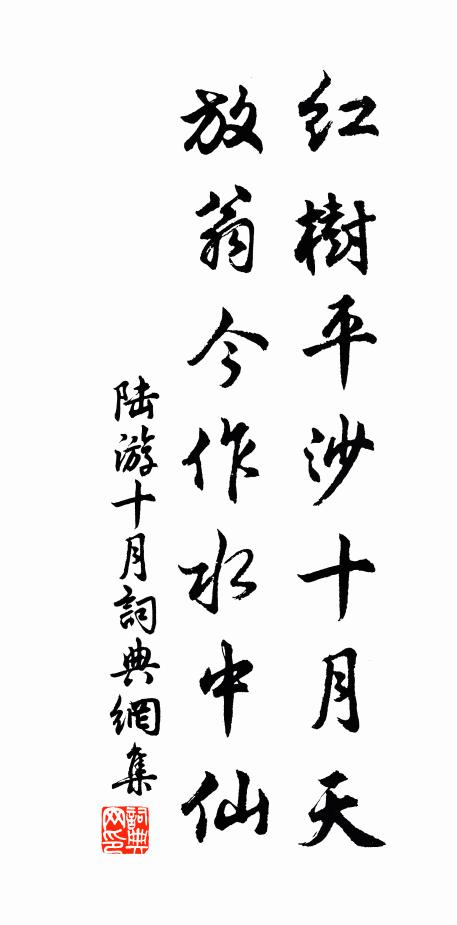 红樹平沙十月天
放翁今作水中仙
陆游十月詞典網集
詞典网印